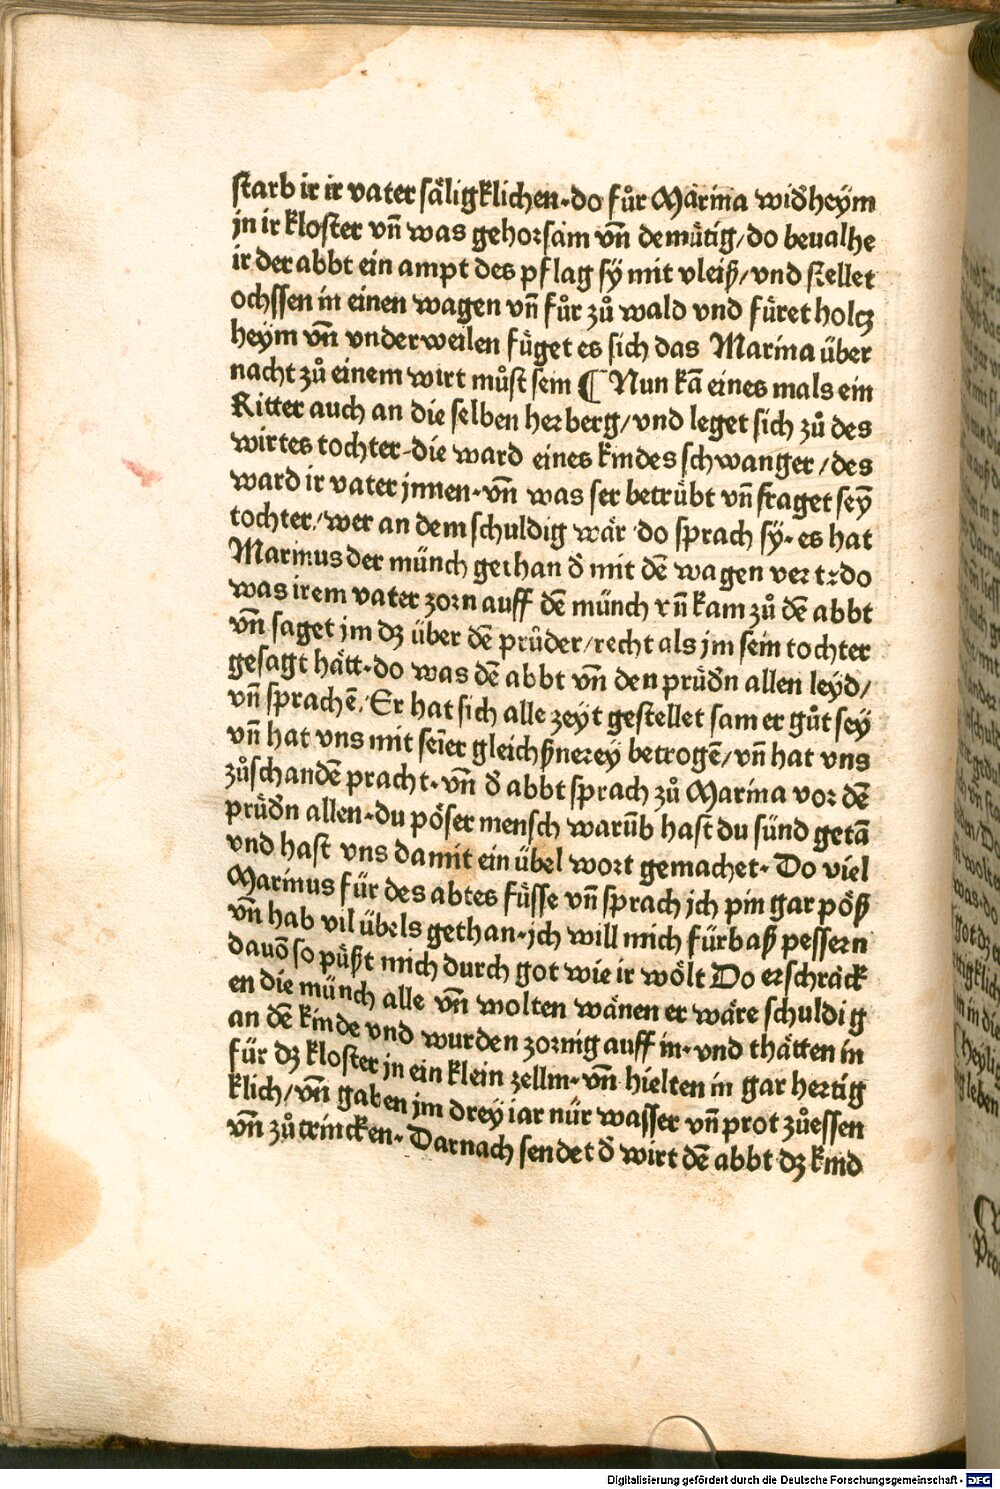 starb ir ir vater säligklichen·do fůr Marina wiðheÿm
jn ir kloster vn̄ was gehorsam vn̄ demütig/do beualhe
ir der abbt ein ampt des pflag sÿ mit vleiß/vnd stellet
ochssen in einen wagen vn̄ fůr zů wald vnd füret holcz
heym vn̄ vnderweilen füget es sich das Marina über
nacht zů einem wirt můst sein ¶ Nun kā eines mals ein
Ritter auch an die selben herberg/vnd leget sich zů des
wirtes tochter·die ward eines kindes schwanger/des
ward ir vater jnnen·vn̄ was ser betrübt vn̄ fraget seȳ
tochter/wer an dem schuldig wär·do sprach sÿ·es hat
Marinus der münch gethan ð mit dē wagen vert·do
was irem vater zorn auff dē münch vn̄ kam zů dē abbt
vn̄ saget jm dz über dē průder/recht als jm sein tochter
gesagt hätt·do was dē abbt vn̄ den průðn allen leyd/
vn̄ sprachē/Er hat sich alle zeyt gestellet sam er gůt seÿ
vn̄ hat vns mit seīer gleichßnerey betrogē/vn̄ hat vns
zůschandē pracht·vn̄ ð abbt sprach zů Marina vor dē
prüðn allen·du pöser mensch warūb hast du sünd getā
vnd hast vns damit ein übel wort gemachet·Do viel
Marinus für des abtes füsse vn̄ sprach jch pin gar pöß
vn̄ hab vil übels gethan·jch will mich fürbaß pessern
dauō so püßt mich durch got wie ir wölt Do erschräck
en die münch alle vn̄ wolten wänen er wäre schuldig
an dē kinde vnd wurden zornig auff in·vnd thätten in
für dz kloster jn ein klein zellin·vn̄ hielten in gar hertig
klich/vn̄ gaben jm drey iar nür wasser vn̄ prot zůessen
vn̄ zů trincken·Darnach sendet ð wirt dē abbt dz kind
Digitalisierung gefördert durch die Deutsche Forschungsgemeinschaft - DFG